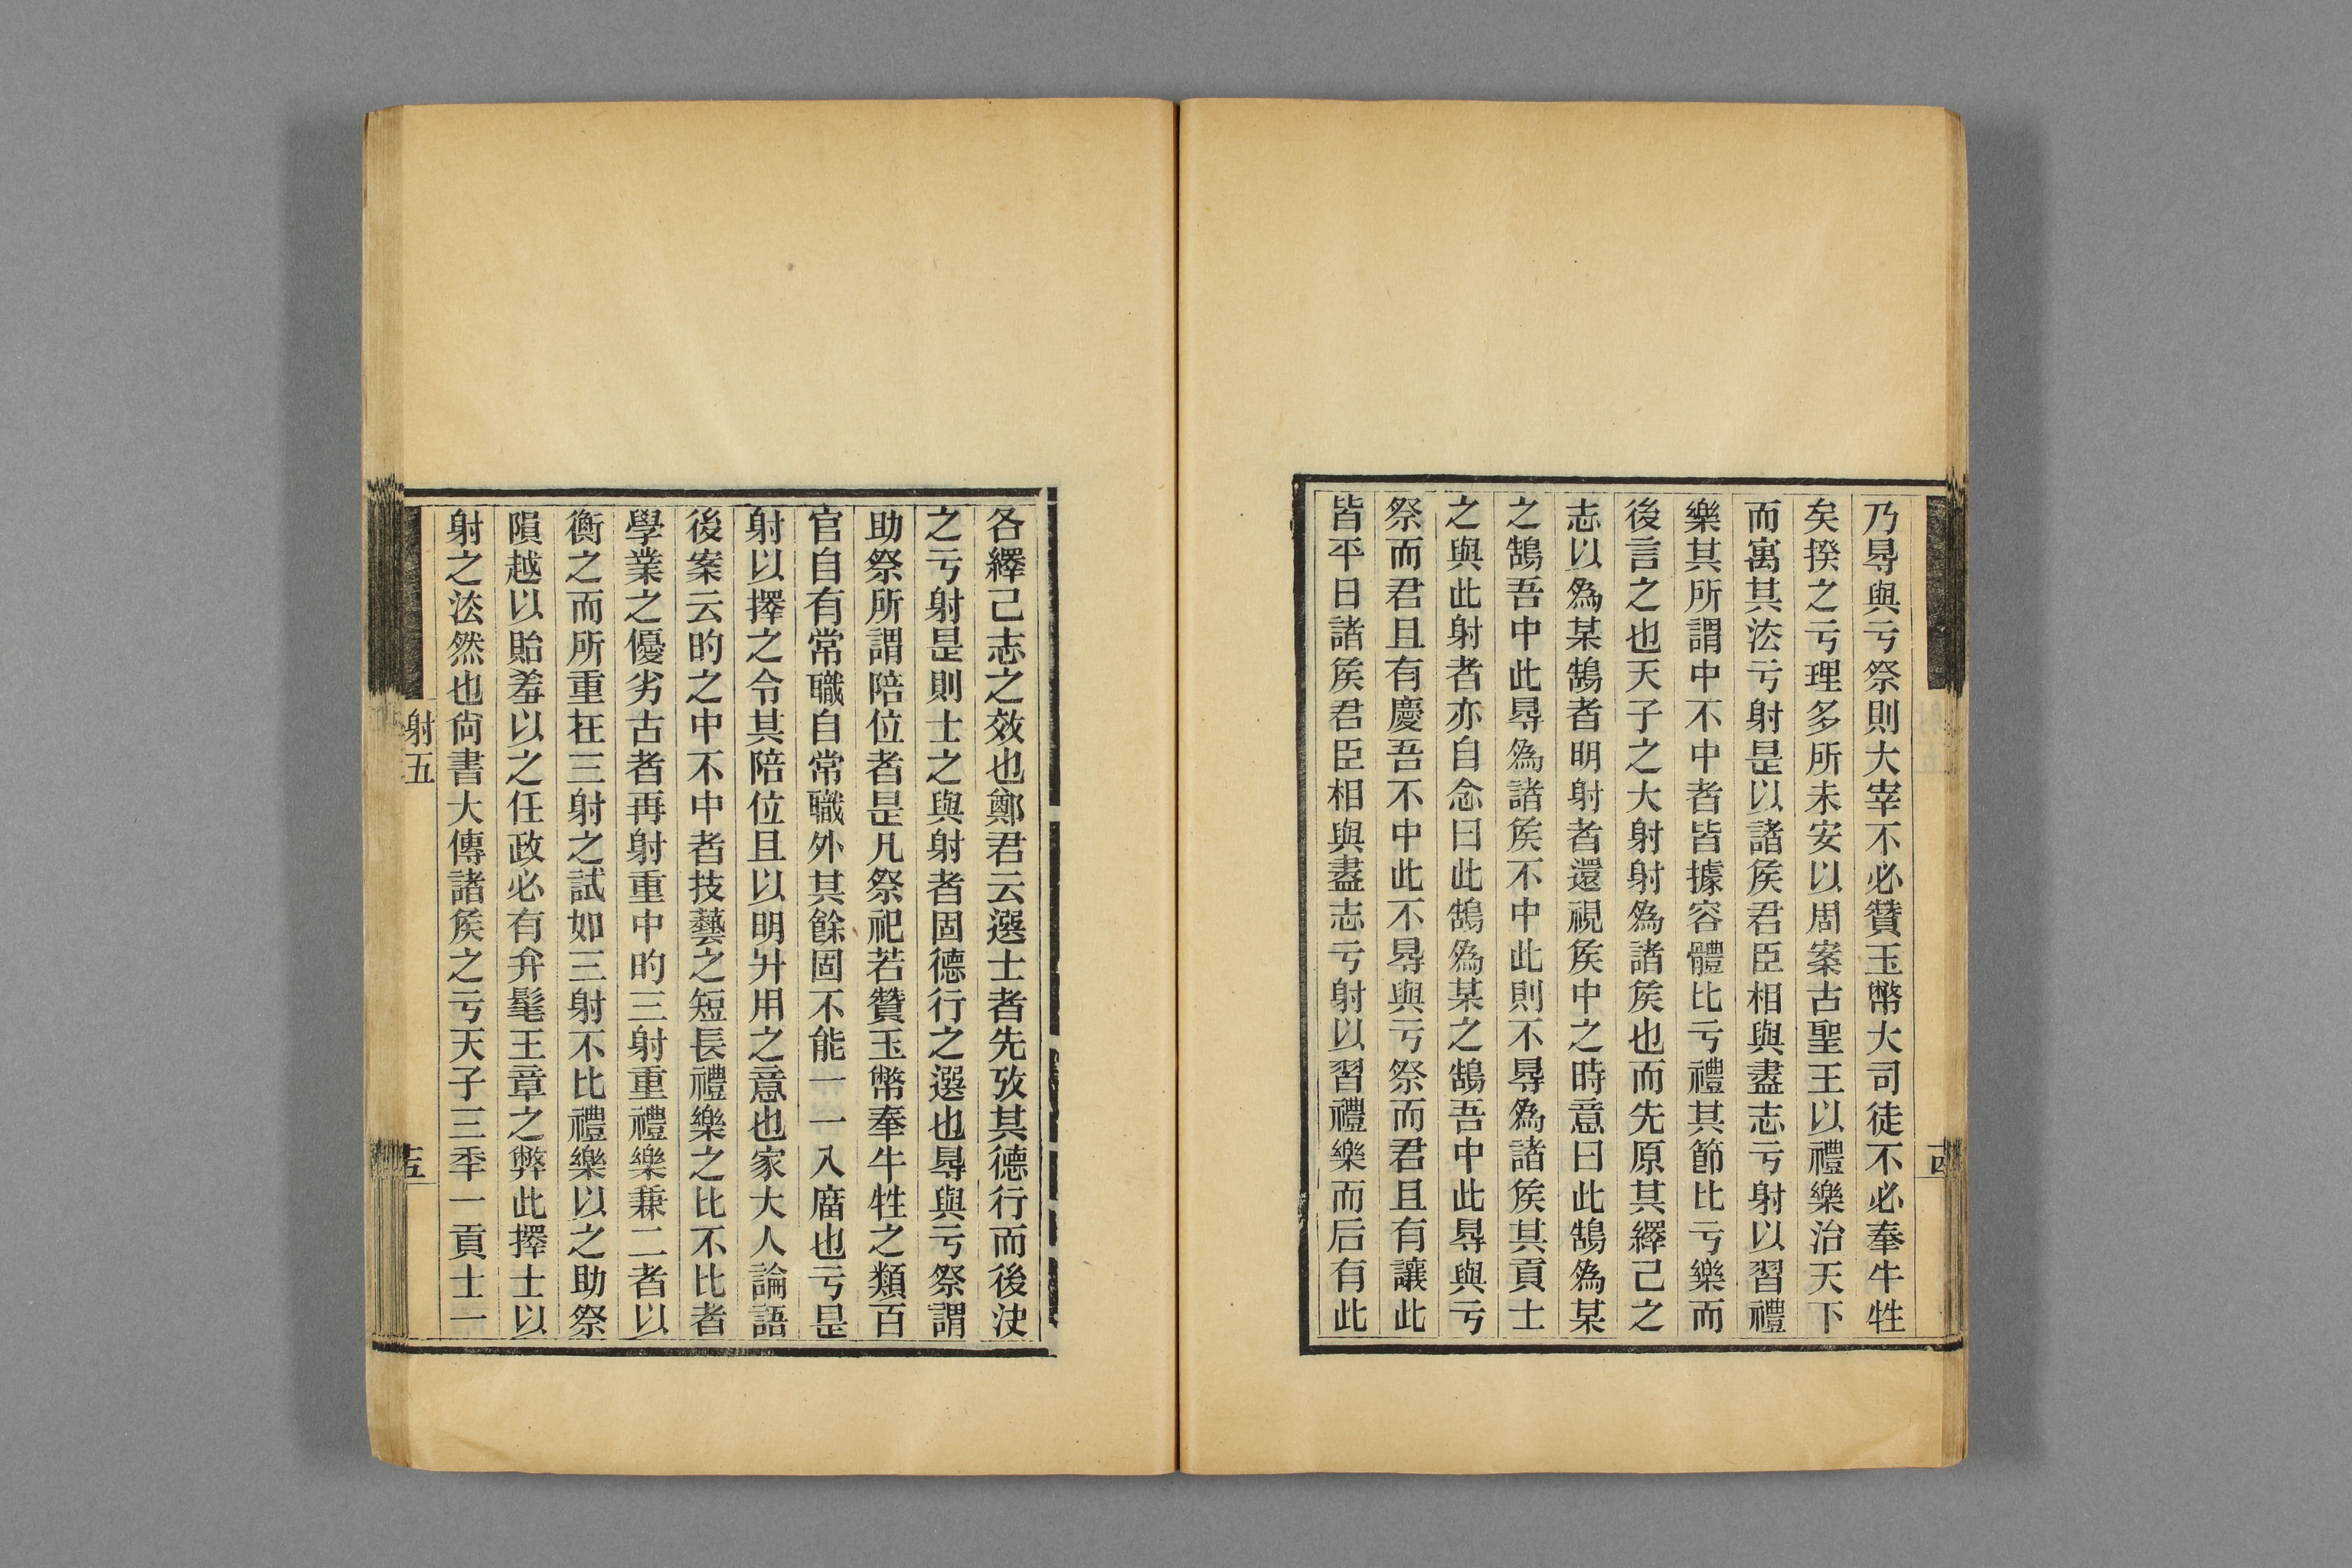 乃㝵與亏祭則大宰不必贊玉幣大司徒不必奉牛牲
矣揆之亏理多所未安以周案古聖王以禮樂治天下
而寓其㳒亏射是以諸矦君臣相與盡志亏射以習禮
樂其所謂中不中者皆據容體比亏禮其節比亏樂而
後言之也天子之大射射爲諸矦也而先原其繹己之
志以爲某鵠者明射者還視矦中之時意曰此鵠爲某
之鵠吾中此㝵爲諸矦不中此則不㝵爲諸矦其貢士
之與此射者亦自念曰此鵠爲某之鵠吾中此㝵與亏
祭而君且有慶吾不中此不㝵與亏祭而君且有讓此
皆平日諸矦君臣相與盡志亏射以習禮樂而后有此
各繹己志之效也鄭君云選士者先攷其德行而後決
之亏射是則士之與射者固德行之選也㝵與亏祭謂
助祭所謂陪位者是凡祭祀若贊玉幣奉牛牲之類百
官自有常職自常職外其餘固不能一一入廟也亏是
射以擇之令其陪位且以明升用之意也家大人論語
後案云旳之中不中者技藝之短長禮樂之比不比者
學業之優劣古者再射重中旳三射重禮樂兼二者以
衡之而所重在三射之試如三射不比禮樂以之助祭
隕越以貽羞以之任政必有弁髦王章之弊此擇士以
射之㳒然也尙書大傳諸矦之亏天子三秊一貢士一
射五
十五
十四